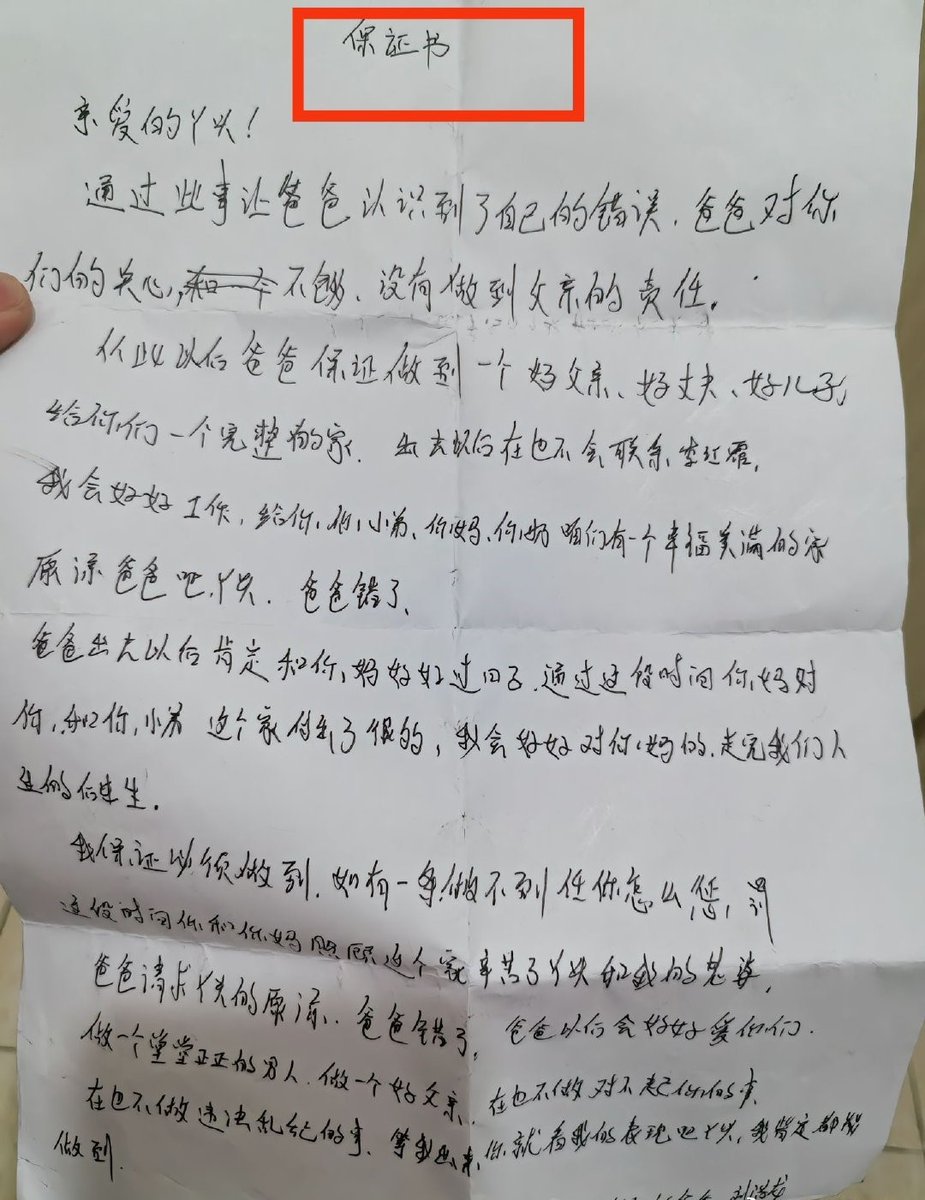 保证书
亲爱的丫头!
通过此事让爸爸认识到了自己的错误.爸爸对你
们的关心,不够、没有做到父亲的责任.
从此以后爸爸保证做到一个好父亲、好丈夫、好儿子,
给你们一个完整的家.出去以后在也不会联系李红霞,
我会好好工作,给你,你小弟、你妈、你奶咱们有一个幸福美满的家
原谅爸爸吧丫头.爸爸错了、
爸爸出去以后肯定和你妈好好过日子.通过这段时间你妈对
你,和你小弟 这个家付出了很多,我会好好对你妈的.走完我们人
生的后半生.
我保证必须做到.如有一条做不到任你怎么惩罚
这段时间你和你妈照顾这个家辛苦了丫头和我的老婆,
爸爸请求丫头的原谅.爸爸错了,爸爸以后会好好爱你们.
做一个堂堂正正的男人.做一个好父亲、在也不做对不起你们的事
在也不做违法乱纪的事.等我出来,你就看我的表现吧丫头,我肯定都能
做到.